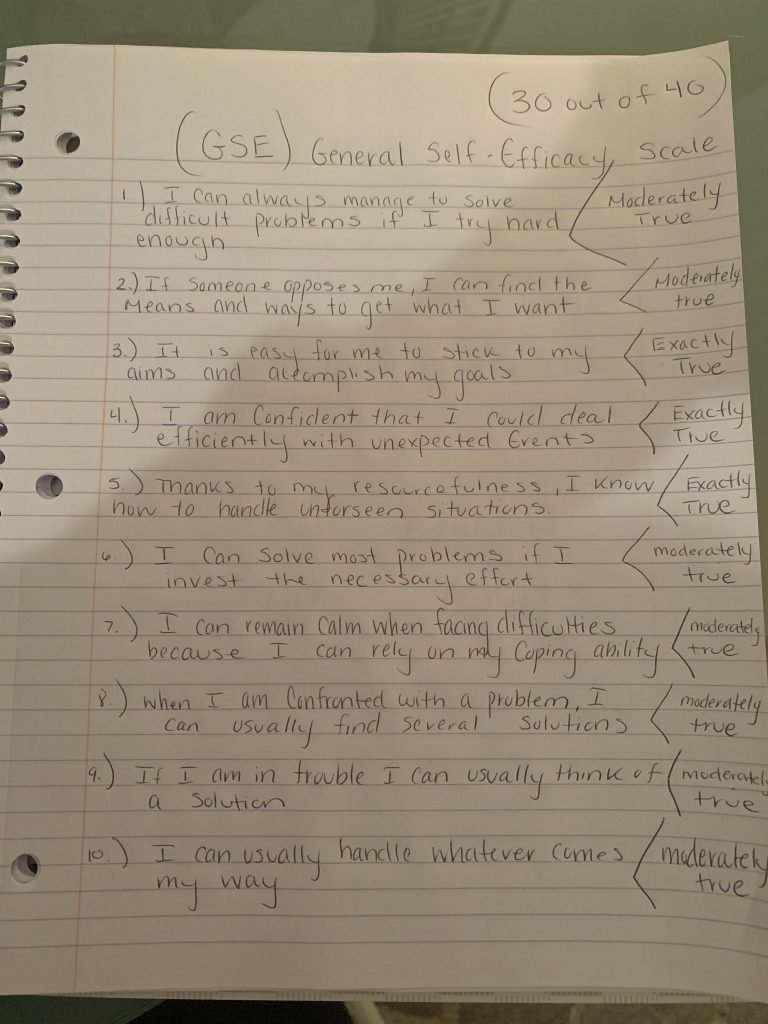 (30 out of 40)
(GSE) General Self-Efficacy Scale
1.) I can always manage to solve
difficult problems if I try hard
enough
Moderately
True
2.) If Someone opposes me, I can find the
Means and ways to get what I want
Moderately
true
3.) It is easy for me to stick to my
aims and accomplish my goals
Exactly
True
4.) I am Confident that I could deal
efficiently with unexpected Events
Exactly
True
5.) Thanks to my resourcefulness, I know
how to handle unforseen situations.
Exactly
True
6.) I Can Solve most problems if I
invest the necessary effort
moderately
true
7.) I can remain Calm when facing difficulties
because I can rely on my Coping ability
moderately
true
8.) when I am Confronted with a problem, I
can usually find several solutions
moderately
true
9.) If I am in trouble I can usually think of
a Solution
moderately
true
10.) I can usually handle whatever comes
my way
moderately
true